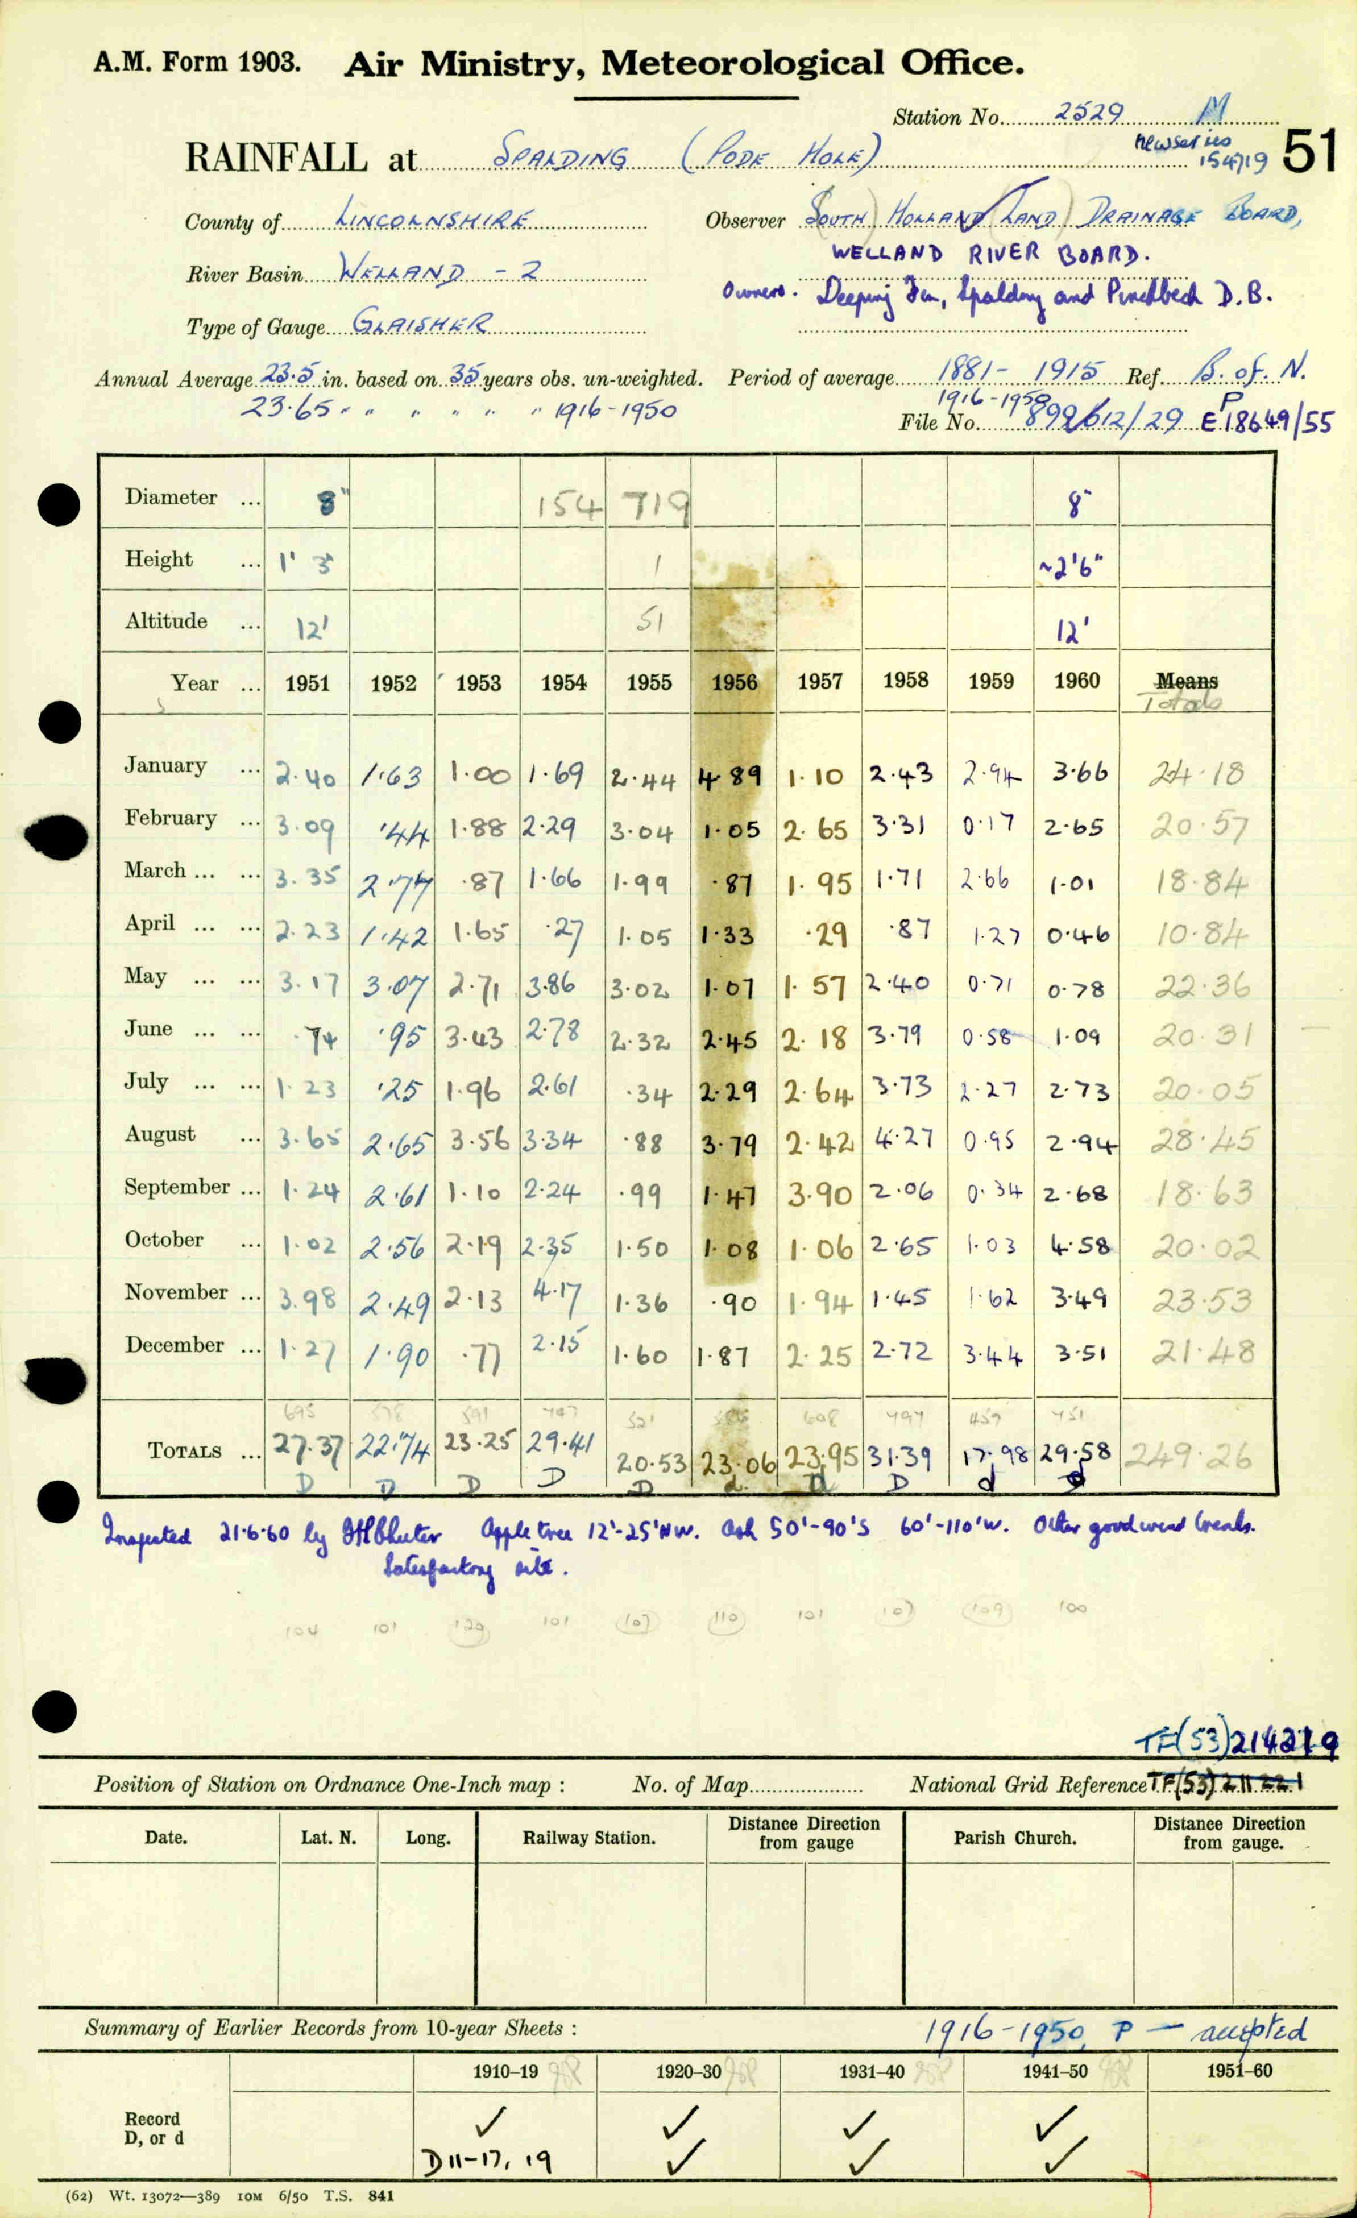 A.M. Form 1903. Air Ministry, Meteorological Office.
Station No. 2529 M
RAINFALL at SPALDING (PODE HOLE) New series 154719 51
County of LINCOLNSHIRE Observer (SOUTH) HOLLAND (LAND) DRAINAGE BOARD,
WELLAND RIVER BOARD.
River Basin WELLAND - 2
Owners. Deeping Fen, Spalding and Pinchbeck D.B.
Type of Gauge GLAISHER
Annual Average 23.5 in. based on 35 years obs. un-weighted. Period of average 1881- 1915 Ref. B. of. N.
23.65 " " " " " " 1916-1950 1916-1950 P
File No. 892612/29 E 18649/55
Diameter ... 8" 154 719 8"
Height ... 1' 3" 1 ~2'6"
Altitude ... 12' 51 12'
Year ... 1951 1952 1953 1954 1955 1956 1957 1958 1959 1960 Means
Totals
January ... 2.40 1.63 1.00 1.69 2.44 4.89 1.10 2.43 2.94 3.66 24.18
February ... 3.09 .44 1.88 2.29 3.04 1.05 2.65 3.31 0.17 2.65 20.57
March ... ... 3.35 2.77 .87 1.66 1.99 .87 1.95 1.71 2.66 1.01 18.84
April ... ... 2.23 1.42 1.65 .27 1.05 1.33 .29 .87 1.27 0.46 10.84
May ... ... 3.17 3.07 2.71 3.86 3.02 1.07 1.57 2.40 0.71 0.78 22.36
June ... ... .74 .95 3.43 2.78 2.32 2.45 2.18 3.79 0.58 1.09 20.31
July ... ... 1.23 .25 1.96 2.61 .34 2.29 2.64 3.73 2.27 2.73 20.05
August ... 3.65 2.65 3.56 3.34 .88 3.79 2.42 4.27 0.95 2.94 28.45
September ... 1.24 2.61 1.10 2.24 .99 1.47 3.90 2.06 0.34 2.68 18.63
October ... 1.02 2.56 2.19 2.35 1.50 1.08 1.06 2.65 1.03 4.58 20.02
November ... 3.98 2.49 2.13 4.17 1.36 .90 1.94 1.45 1.62 3.49 23.53
December ... 1.27 1.90 .77 2.15 1.60 1.87 2.25 2.72 3.44 3.51 21.48
695 578 591 747 521 608 797 457 751
TOTALS ... 27.37 22.74 23.25 29.41 20.53 23.06 23.95 31.39 17.98 29.58 249.26
D D D D D d D D d d
Inspected 21.6.60 by Apple tree 12'-25'NW. Ash 50'-90'S 60'-110'W. Other good wind breaks.
Satisfactory site.
104 101 120 101 107 110 101 107 109 100
TF(53)214219
Position of Station on Ordnance One-Inch map : No. of Map National Grid Reference TF(53) 211221
Date. Lat. N. Long. Railway Station. Distance from gauge Direction Parish Church. Distance from gauge. Direction
Summary of Earlier Records from 10-year Sheets : 1916-1950, P - accepted
1910–19 1920–30 1931–40 1941–50 1951–60
Record D, or d ✓ ✓ ✓ ✓
D 11-17, 19 ✓ ✓ ✓
(62) Wt. 13072—389 10M 6/50 T.S. 841